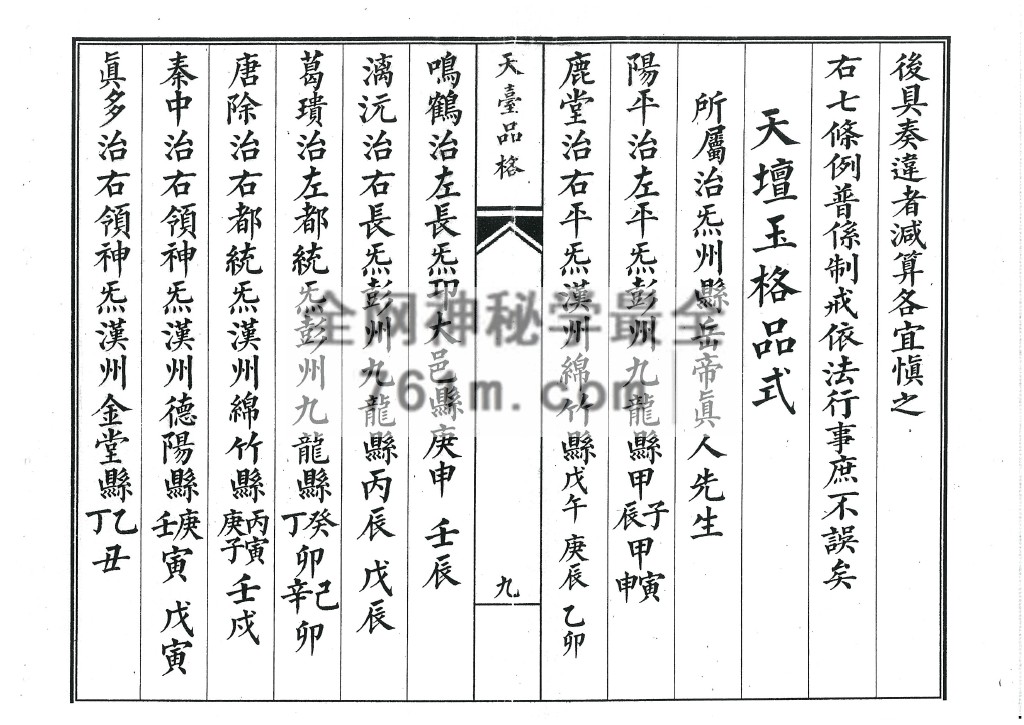 後具奏違者減算各宜愼之
右七條例普係制戒依法行事庶不誤矣
天壇玉格品式
所屬治炁州縣岳帝眞人先生
陽平治左平炁彭州九龍縣甲子甲寅辰申
鹿堂治右平炁漢州綿竹縣戊午 庚辰 乙卯
天臺品格
九
鳴鶴治左長炁卭大邑縣庚申 壬辰
漓沅治右長炁彭州九龍縣丙辰 戊辰
葛璝治左都統炁彭州九龍縣癸丁卯己辛卯
唐除治右都統炁漢州綿竹縣丙寅庚子壬戍
秦中治右領神炁漢州德陽縣庚壬寅 戊寅
眞多治右領神炁漢州金堂縣乙丁丑
全网神秘学最全
761m.com